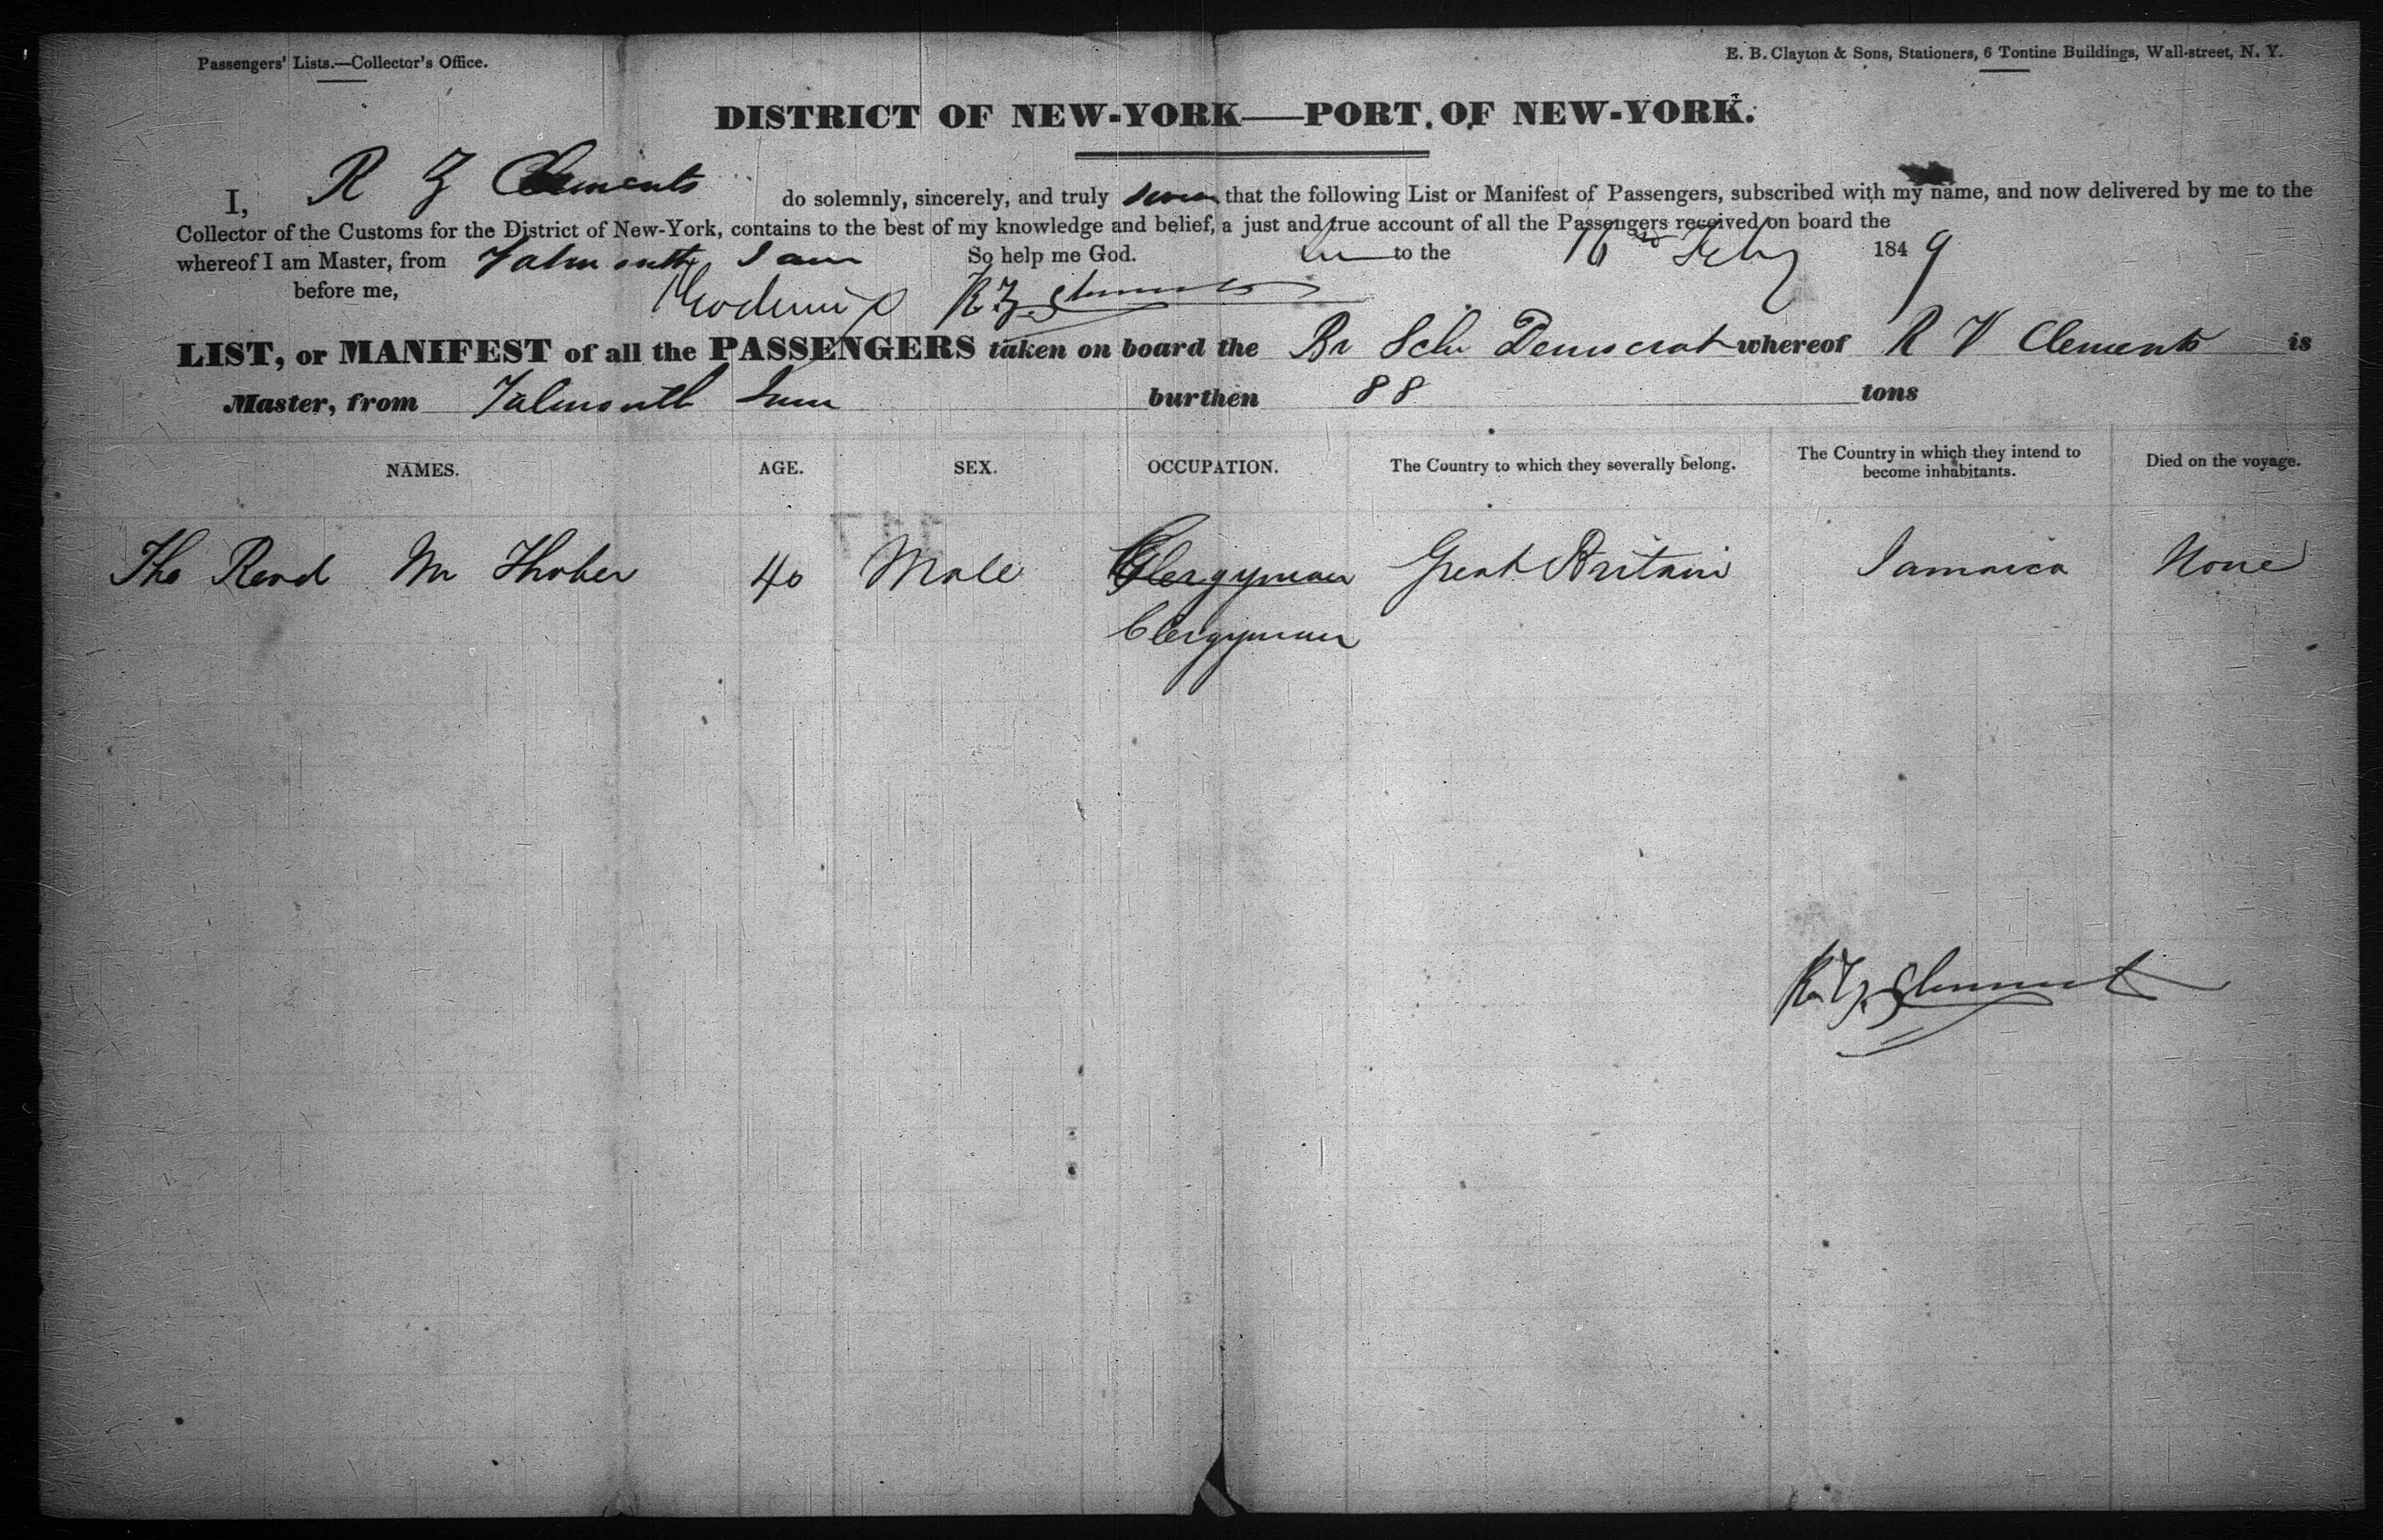 Passengers' Lists.—Collector's Office.
E. B. Clayton & Sons, Stationers, 6 Tontine Buildings, Wall-street, N. Y.
DISTRICT OF NEW-YORK—PORT OF NEW-YORK.
I, R Z Clements do solemnly, sincerely, and truly that the following List or Manifest of Passengers, subscribed with my name, and now delivered by me to the
Collector of the Customs for the District of New-York, contains to the best of my knowledge and belief, a just and true account of all the Passengers received on board the
whereof I am Master, from Falmouth Jam So help me God. to the 16 Feby 1849
before me,
LIST, or MANIFEST of all the PASSENGERS taken on board the Br Schr Democrat whereof R V Clements is
Master, from Falmouth Jam burthen 88 tons
NAMES. AGE. SEX. OCCUPATION. The Country to which they severally belong. The Country in which they intend to become inhabitants. Died on the voyage.
The Revd Mr 40 Male Clergyman Great Britain Jamaica None
Clergyman